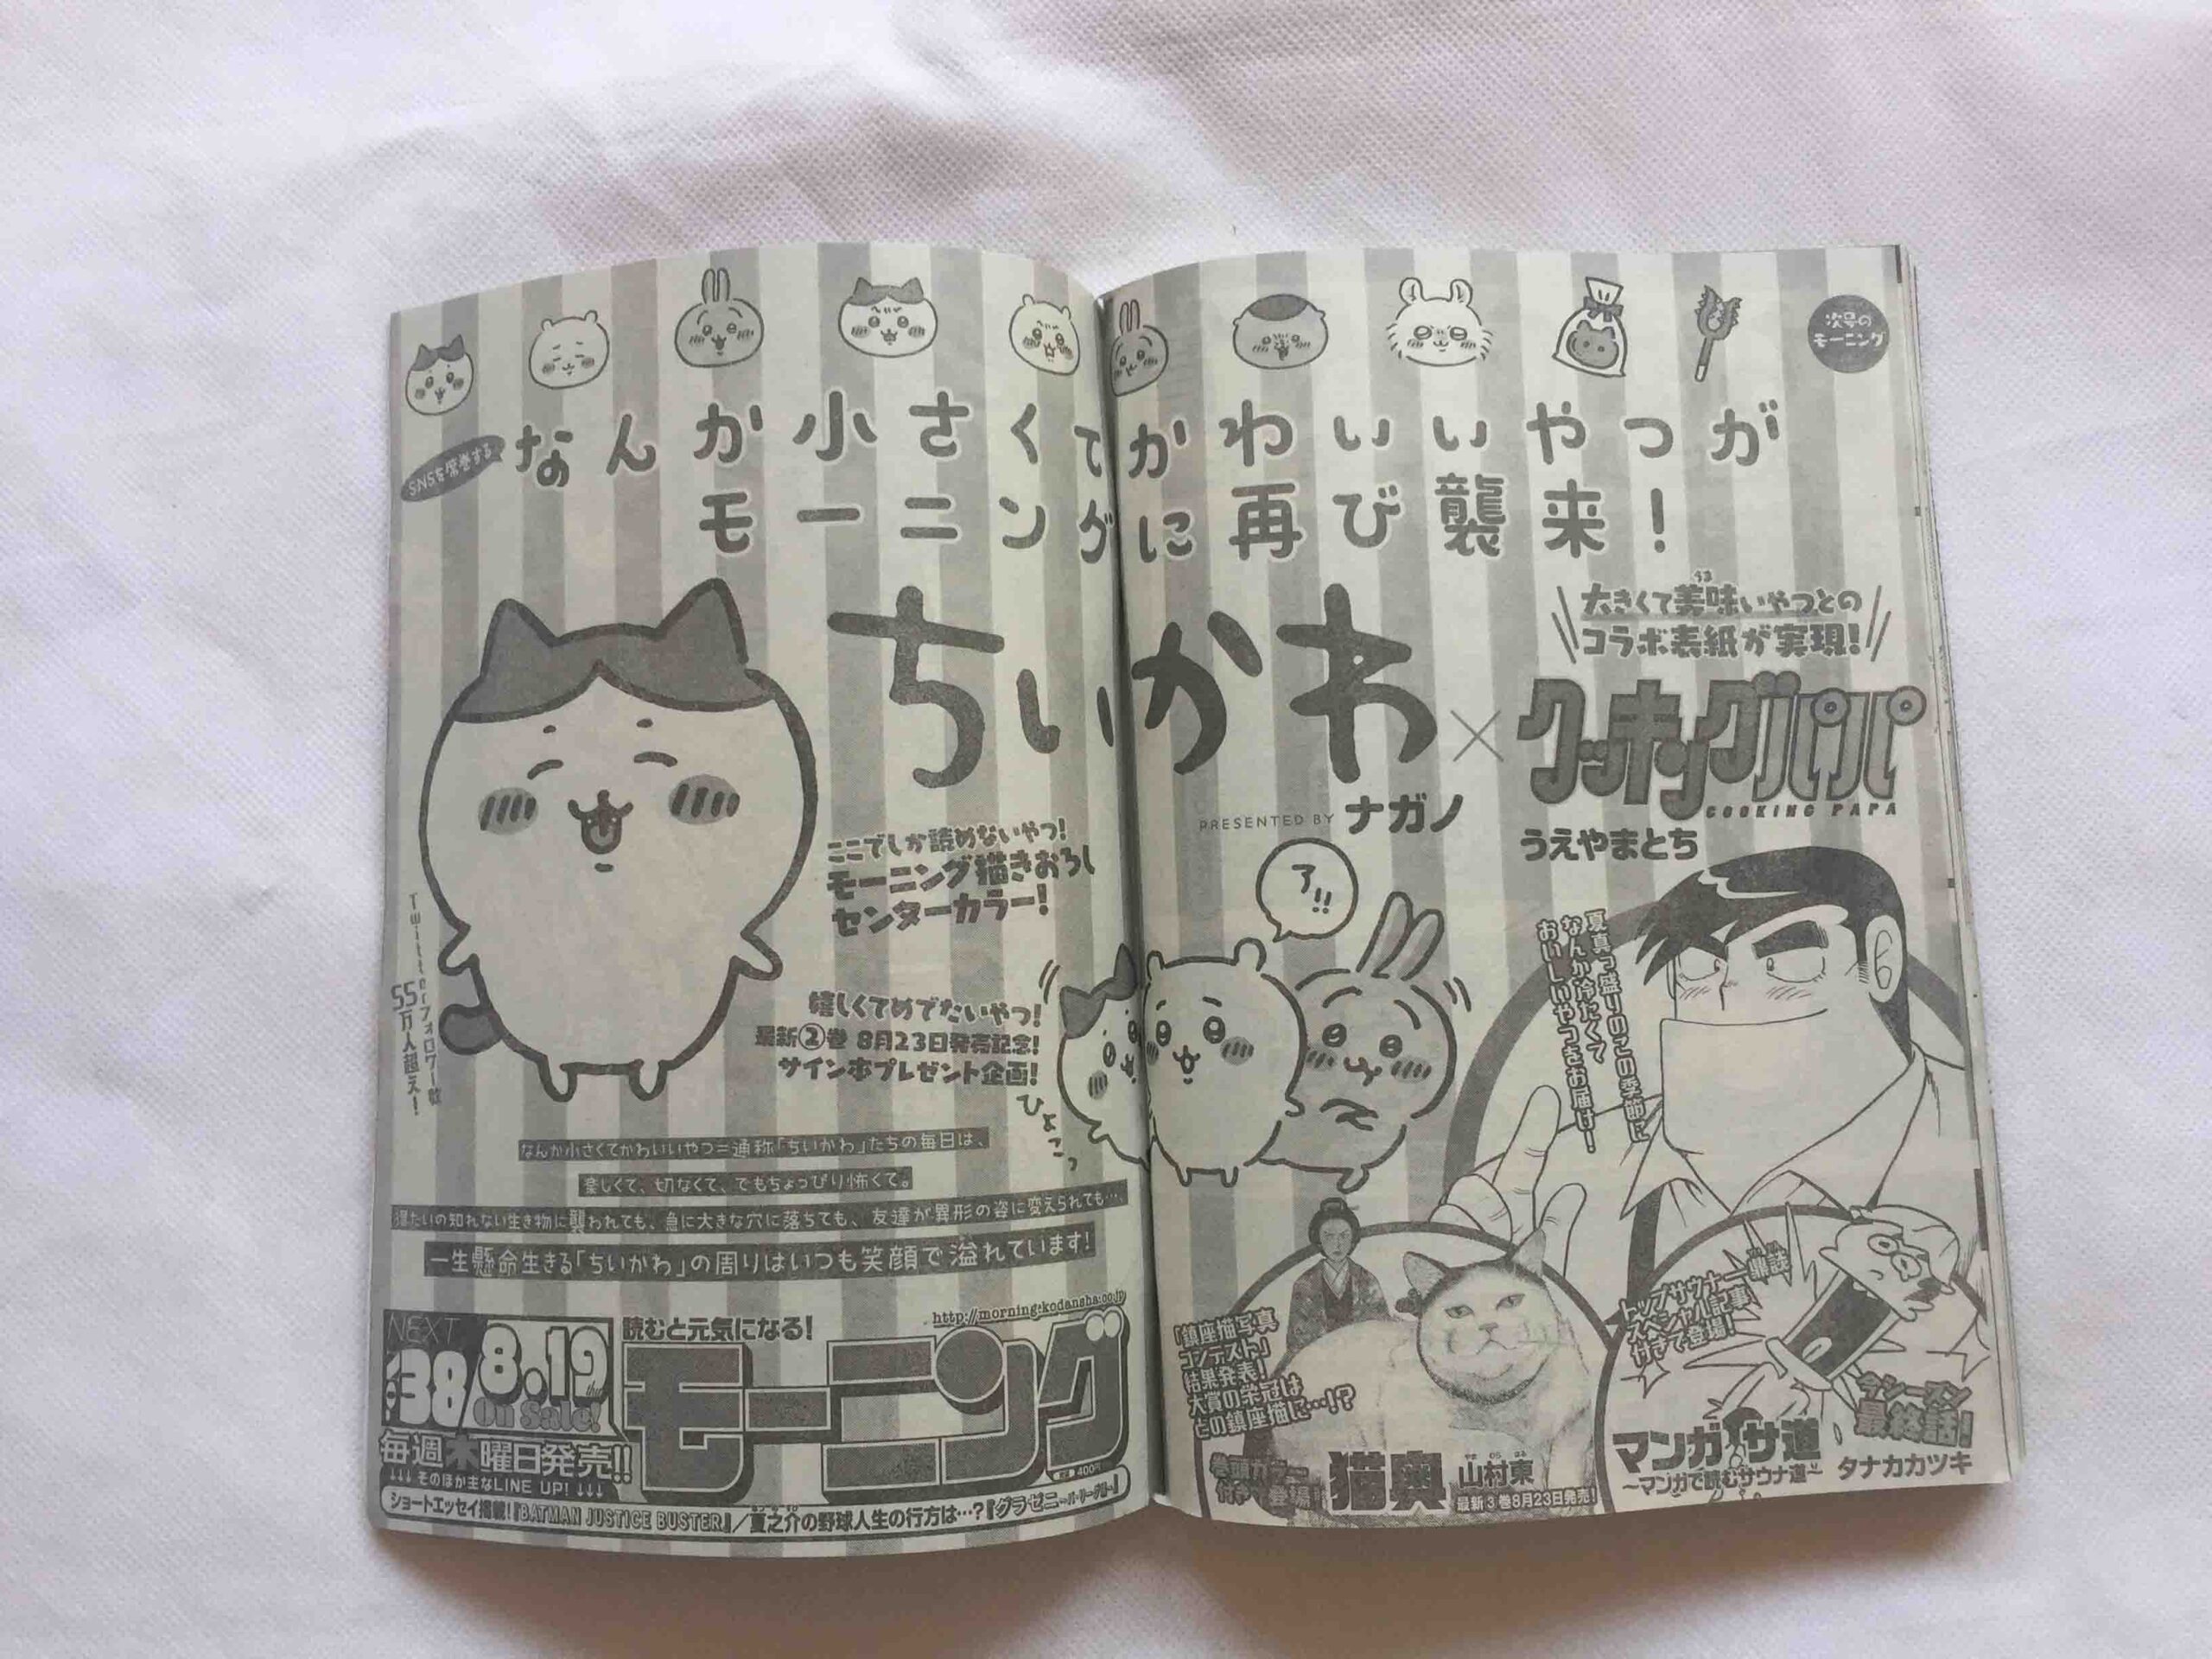 次号の
モーニング
SNSを席巻する
なんか小さくてかわいいやつが
モーニングに再び襲来!
ちいかわ
PRESENTED BY ナガノ
×
大きくて美味いやつとの
うま
コラボ表紙が実現!
クッキングパパ
COOKING PAPA
うえやまとち
ここでしか読めないやつ!
モーニング描きおろし
センターカラー!
Twitterフォロワー数
55万人超え!
嬉しくてめでたいやつ!
最新②巻 8月23日発売記念!
サイン本プレゼント企画!
ひょこっ
ア!!
夏真っ盛りのこの季節に
なんか冷たくて
おいしいやつをお届け!
なんか小さくてかわいいやつ=通称「ちいかわ」たちの毎日は、
楽しくて、切なくて、でもちょっぴり怖くて。
得たいの知れない生き物に襲われても、急に大きな穴に落ちても、友達が異形の姿に変えられても…、
一生懸命生きる「ちいかわ」の周りはいつも笑顔で溢れています!
NEXT
38
8.19
thu
On Sale!
毎週木曜日発売!!
↓↓↓ そのほか主なLINE UP! ↓↓↓
読むと元気になる!
http://morning.kodansha.co.jp
モーニング
400円
ショートエッセイ掲載!『BATMAN JUSTICE BUSTER』/夏之介の野球人生の行方は…?『グラゼニ〜パ・リーグ編〜』
「鎮座猫写真
コンテスト」
結果発表!
大賞の栄冠は
どの鎮座猫に…!?
巻頭カラー
付きで登場!
猫奥
山村東
やまむらはる
最新3巻8月23日発売!
トップサウナー鼎談
スペシャル記事
付きで登場!
マンガ サ道
〜マンガで読むサウナ道〜
タナカカツキ
今シーズン
最終話!